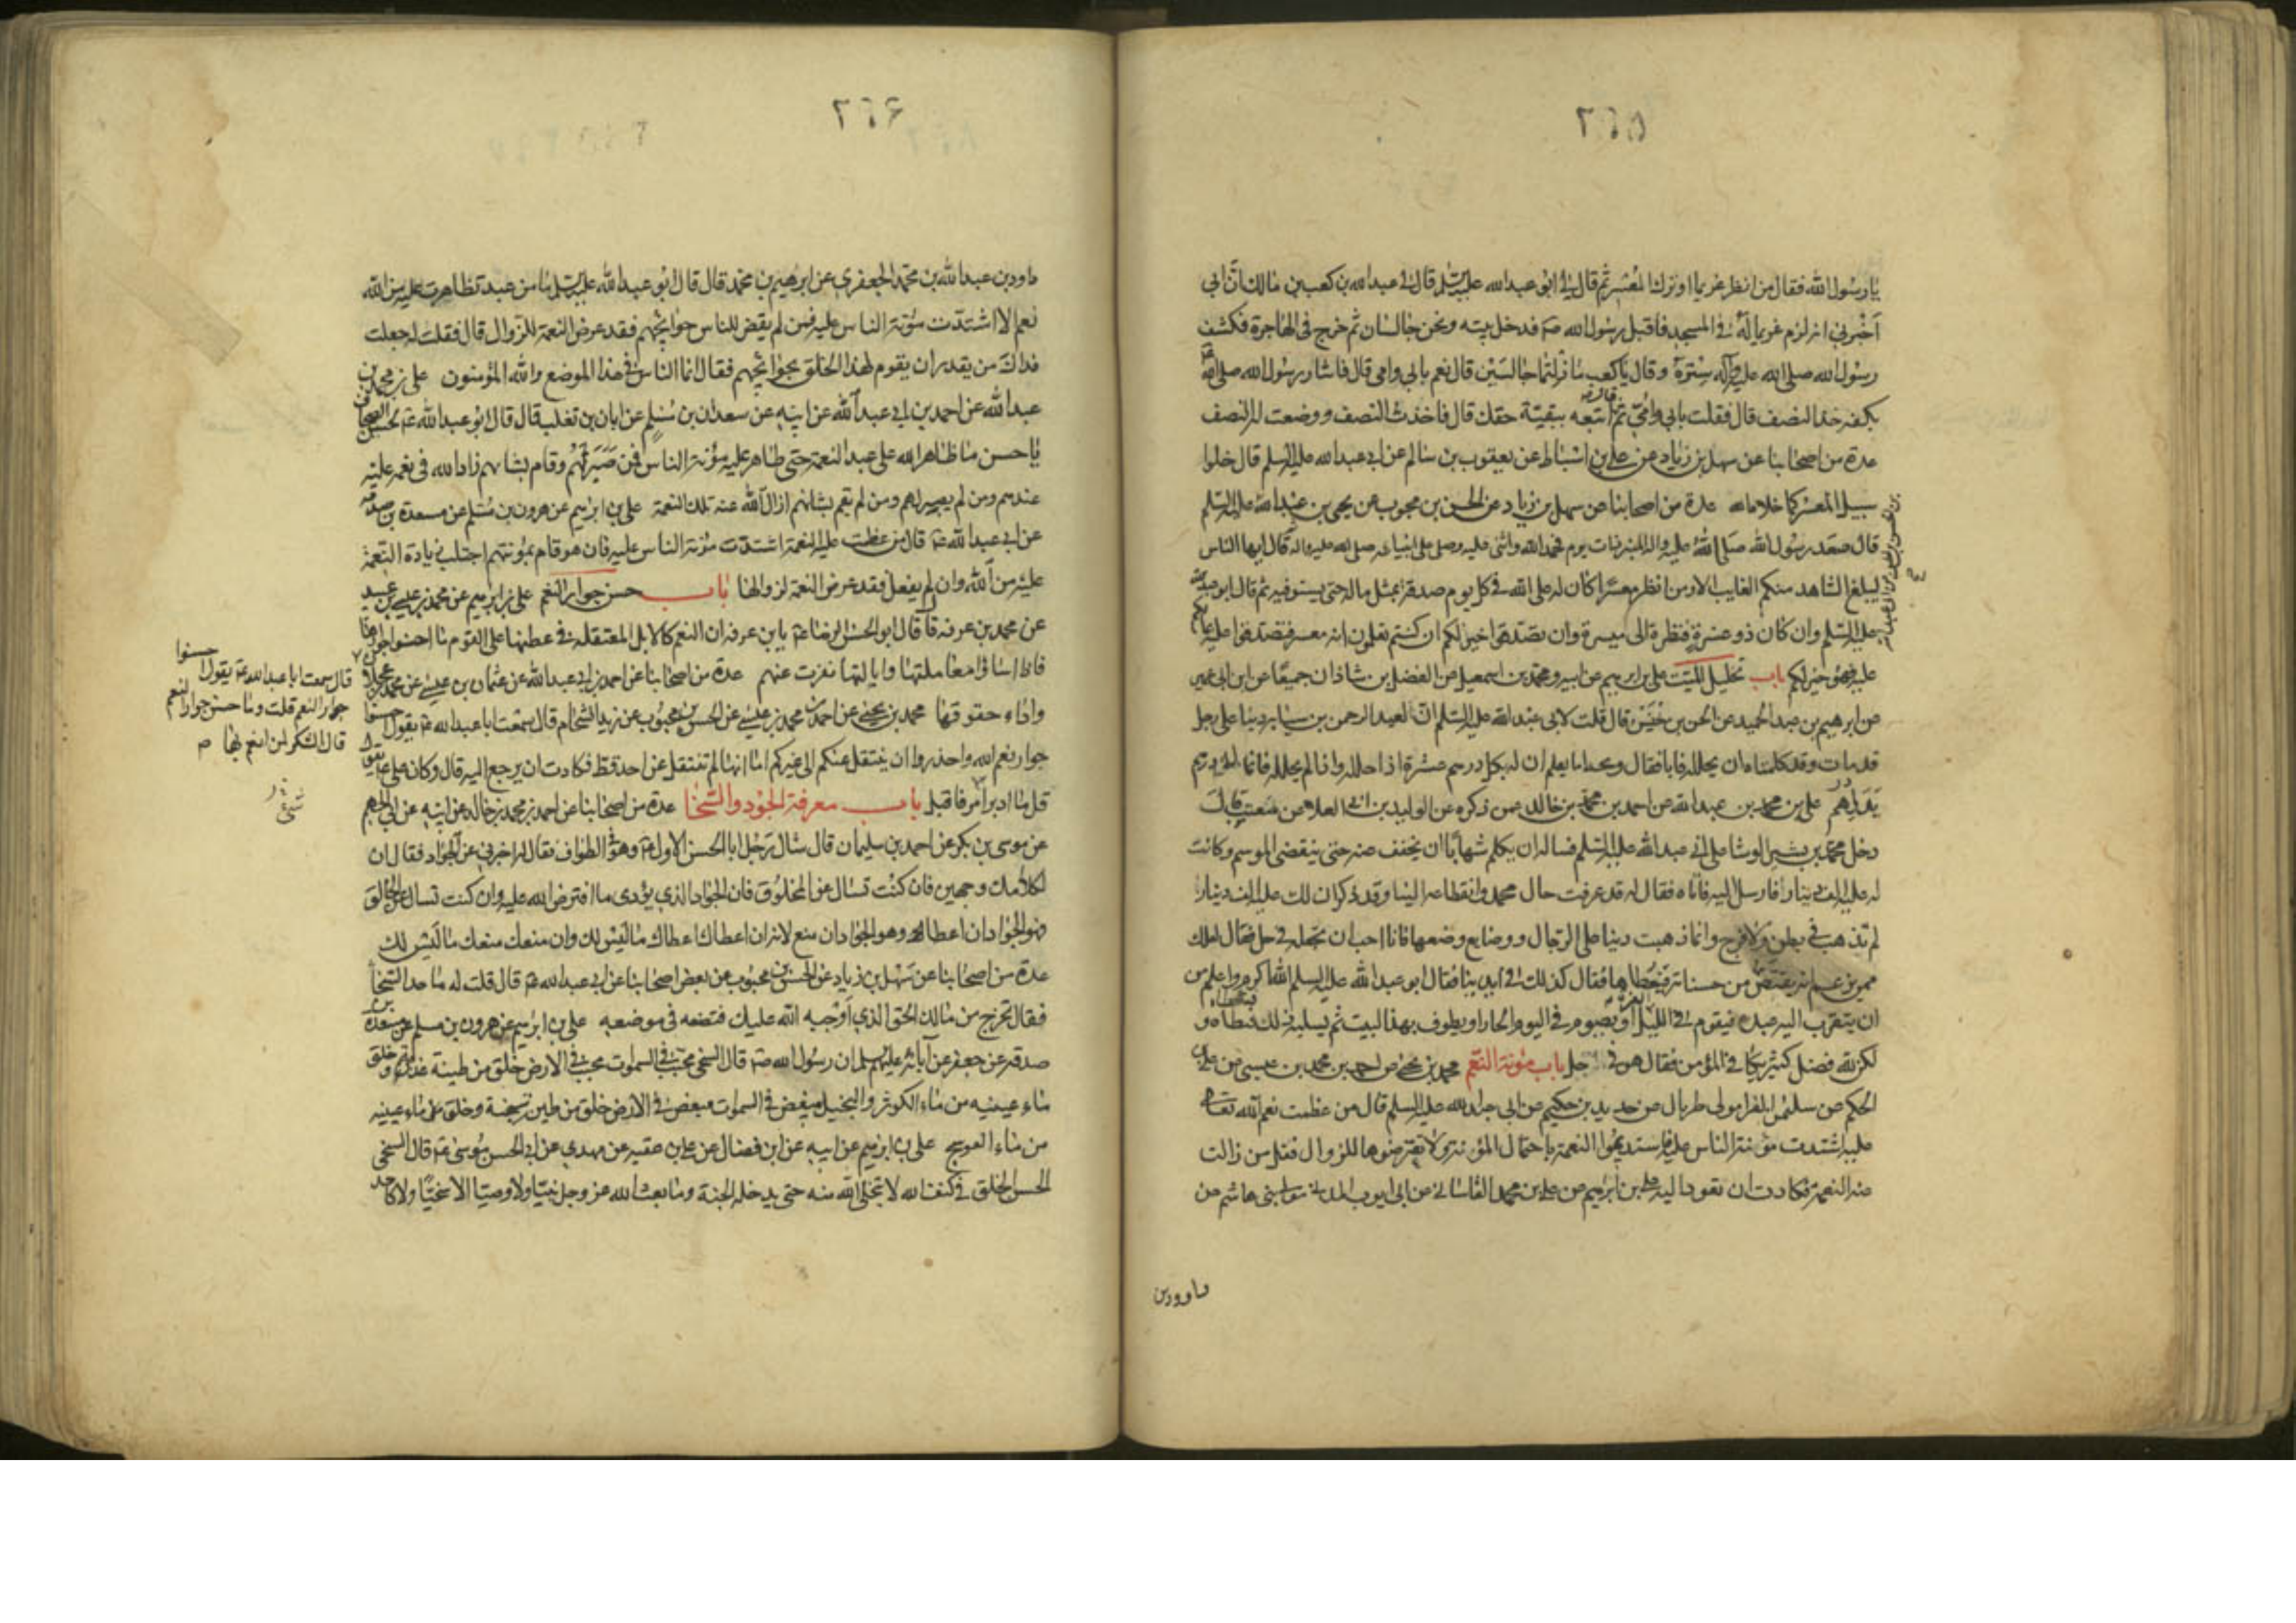 ٢٦٥
يا رسول الله فقال من انظر غريما او ترك المعسر ثم قال لي ابو عبد الله عليه السلم قال لي عبد الله بن كعب بن مالك ان ابي
اخبرني انه لزم غريما له في المسجد فاقبل رسول الله صم فدخل بيته ونحن جالسان ثم خرج في الهاجرة فكشف
رسول الله صلى الله عليه وآله سترة وقال يا كعب ما زلتما جالسين قال نعم بابي وامي قال فاشار رسول الله صلى الله
بكفه خذ النصف قال فقلت بابي وامي ثم قال اتبعه ببقية حقك قال فاخذت النصف ووضعت له النصف
عدة من اصحابنا عن سهل بن زياد عن علي بن اسباط عن يعقوب بن سالم عن ابي عبد الله عليه السلم قال خلوا
سبيل المعسر كما خلاه الله عدة من اصحابنا عن سهل بن زياد عن الحسن بن محبوب عن يحيى بن عبد الله عليه السلم
قال صعد رسول الله صلى الله عليه واله المنبر ذات يوم فحمد الله واثنى عليه وصلى على انبيائه صلى الله عليه واله قال ايها الناس
ليبلغ الشاهد منكم الغايب الا ومن انظر معسرا كان له على الله في كل يوم صدقة بمثل ماله حتى يستوفيه ثم قال ابو عبد الله
عليه السلم وان كان ذو عسرة فنظرة الى ميسرة وان تصدقوا خير لكم ان كنتم تعلمون انه معسر فتصدقوا عليه
عليه فهو خير لكم باب تحليل الميت علي بن ابرهيم عن ابيه ومحمد بن اسمعيل عن الفضل بن شاذان جميعا عن ابن ابي عمير
عن ابرهيم بن عبد الحميد عن الحسن بن خنيس قال قلت لابي عبد الله عليه السلم ان لعبد الرحمن بن سيابه دينا على رجل
قد مات وقد كلمناه ان يحلله فابا فقال ويحه اما يعلم ان له بكل درهم عشرة اذا حلله واذا لم يحلله فانما له درهم
بدل درهم علي بن محمد بن عبد الله عن احمد بن محمد بن خالد عمن ذكره عن الوليد بن ابي العلا عن معتب قال
دخل محمد بن بشر الوشا على ابي عبد الله عليه السلم فساله ان يكلم شهابا ان يخفف عنه حتى ينقضي الموسم وكانت
له عليه الف دينار فارسل اليه فاتاه فقال له قد عرفت حال محمد وانقطاعه الينا وقد ذكر ان لك عليه الف دينار
لم تذهب في بطن ولا فرج وانما ذهبت دينا على الرجال ووضايع وضعها فانا احب ان تجعله في حل فقال لعلك
ممن يزعم انه يقتص من حسناته فيعطاها فقال كذلك في ايدينا فقال ابو عبد الله عليه السلم الله اكرم واعلم من
ان يتقرب اليه عبده فيقوم في الليلة او يصوم في اليوم الحار او يطوف بهذا البيت ثم يسلبه ذلك فيعطاه و
لكن لله فضل كثير يكافي المؤمن فقال هو في حل باب مؤنة النعم محمد بن يحيى عن احمد بن محمد بن عيسى عن علي بن
الحكم عن سليمن الفرا مولى طربال عن حديد بن حكيم عن ابي عبد الله عليه السلم قال من عظمت نعم الله
عليه اشتدت مؤنة الناس عليه فاستديموا النعمة باحتمال المؤنة ولا تعرضوها للزوال فقل من زالت
عنه النعمة فكادت ان تعود اليه علي بن ابرهيم عن علي بن محمد القاساني عن ابي ايوب المدني مولى بني هاشم عن
داود بن
٢٦۶
داود بن عبد الله بن محمد الجعفري عن ابرهيم بن محمد قال قال ابو عبد الله عليه السلم ما من عبد تظاهرت عليه من الله
نعم الا اشتدت مؤنة الناس عليه فمن لم يقض للناس حوائجهم فقد عرض النعمة للزوال قال فقلت له جعلت
فداك من يقدر ان يقوم لهذا الخلق بحوائجهم فقال انما الناس في هذا الموضع والله المؤمنون علي بن محمد بن
عبد الله عن احمد بن ابي عبد الله عن ابيه عن سعدان بن مسلم عن ابان بن تغلب قال قال ابو عبد الله ع لحسين الصحاف
يا حسين ما ظاهر الله على عبد النعمة حتى ظاهر عليه مؤنة الناس فمن صبر لهم وقام بشانهم زاد الله في نعمه عليه
عندهم ومن لم يصبر لهم ومن لم يقم بشانهم ازال الله عنه تلك النعمة علي بن ابرهيم عن هرون بن مسلم عن مسعدة بن صدقة
عن ابي عبد الله ع قال من عظمت عليه النعمة اشتدت مؤنة الناس عليه فان هو قام بمؤنتهم اجتلب زيادة النعمة
عليه من الله وان لم يفعل فقد عرض النعمة لزوالها باب حسن جوار النعم علي بن ابرهيم عن محمد بن عيسى بن عبيد
عن محمد بن عرفة قال قال ابو الحسن الرضا ع يا بن عرفة ان النعم كالابل المعتقلة في عطنها على القوم ما احسنوا جوارها
فاذا اساؤا معاملتها وايالتها نفرت عنهم عدة من اصحابنا عن احمد بن ابي عبد الله عن عثمان بن عيسى عن محمد بن عجلان
واداء حقوقها محمد بن يحيى عن احمد بن محمد بن عيسى عن الحسن بن محبوب عن زيد الشحام قال سمعت ابا عبد الله ع يقول احسنوا
جوار نعم الله واحذروا ان ينتقل عنكم الى غيركم اما انها لم تنتقل عن احد قط فكادت ان يرجع اليه قال وكان علي ع يقول
قل ما ادبر امر فاقبل باب معرفة الجود والسخا عدة من اصحابنا عن احمد بن محمد بن خالد عن ابيه عن ابي الجهم
عن موسى بن بكر عن احمد بن سليمان قال سال رجل ابا الحسن الاول ع وهو في الطواف فقال له اخبرني عن الجواد فقال ان
لكلامك وجهين فان كنت تسال عن المخلوق فان الجواد الذي يؤدي ما افترض الله عليه وان كنت تسال عن الخالق
فهو الجواد ان اعطا وهو الجواد ان منع لانه ان اعطاك اعطاك ما ليس لك وان منعك منعك ما ليس لك
عدة من اصحابنا عن سهل بن زياد عن الحسن بن محبوب عن بعض اصحابنا عن ابي عبد الله ع قال قلت له ما حد السخا
فقال تخرج من مالك الحق الذي اوجبه الله عليك فتضعه في موضعه علي بن ابرهيم عن هرون بن مسلم عن مسعدة بن
صدقة عن جعفر عن آبائه عليهم السلم ان رسول الله صم قال السخي محبب في السموات محبب في الارض خلق من طينة عذبة وخلق
ماء عينيه من ماء الكوثر والبخيل مبغض في السموات مبغض في الارض خلق من طين سبخة وخلق ماء عينيه
من ماء العوسج علي بن ابرهيم عن ابيه عن ابن فضال عن علي بن عقبه عن مهدي عن ابي الحسن موسى ع قال السخي
الحسن الخلق في كنف الله لا يتخلى الله منه حتى يدخله الجنة وما بعث الله عز وجل نبيا ولا وصيا الا سخيا ولا كان احد
قال سمعت ابا عبد الله ع يقول احسنوا
جوار النعم قلت وما حسن جوار النعم
قال الشكر لمن انعم بها ص